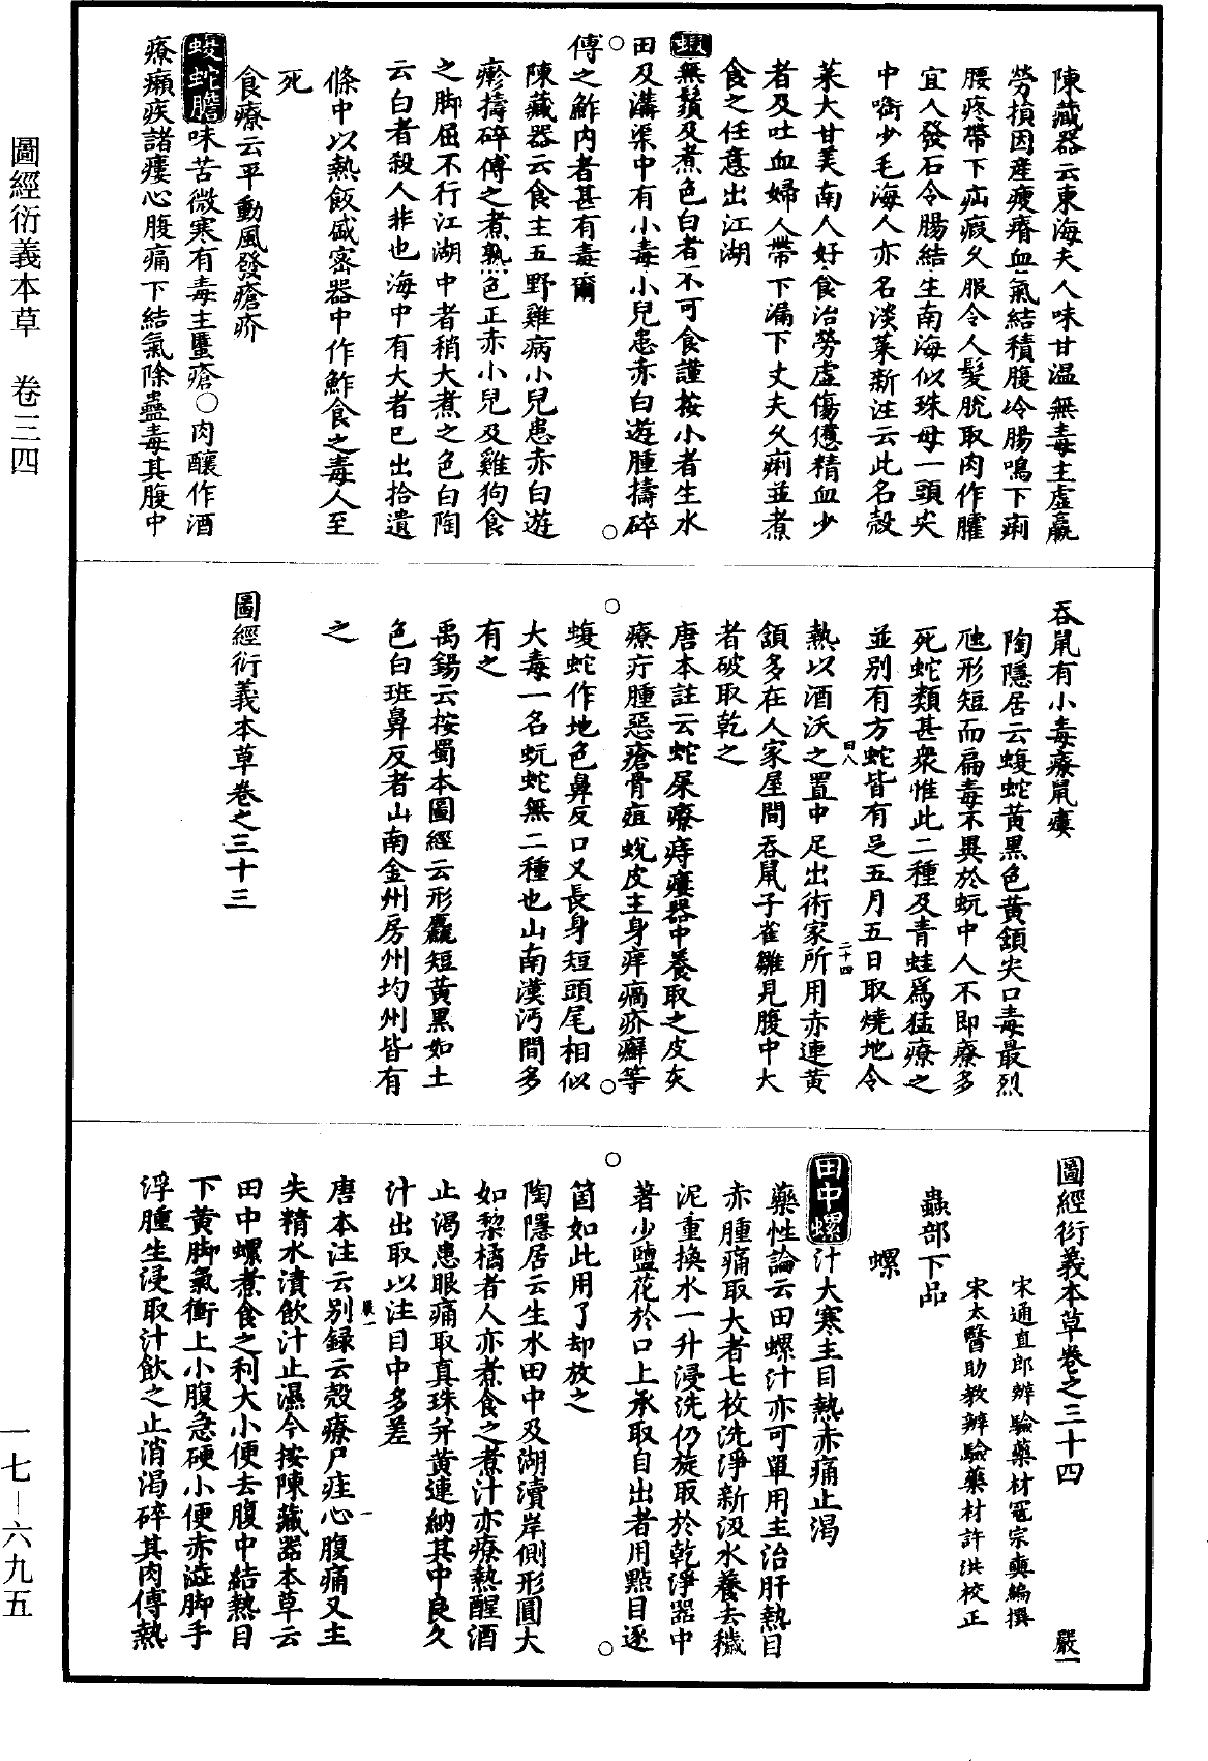 陳藏器云東海夫人味甘溫無毒主虛羸
勞損因産瘦瘠血氣結積腹冷腸鳴下痢
腰疼帶下疝瘕久服令人髮脫取肉作臛
宜人發石令腸結生南海似珠母一頭尖
中啣少毛海人亦名淡菜新注云此名殼
菜大甘美南人好食治勞虛傷憊精血少
者及吐血婦人帶下漏下丈夫久痢並煮
食之任意出江湖
蝦無鬚及煮色白者不可食謹按小者生水
田及溝渠中有小毒小兒患赤白遊腫擣碎
傅之鮓內者甚有毒爾
陳藏器云食主五野雞病小兒患赤白遊
瘮擣碎傅之煮熟色正赤小兒及雞狗食
之脚屈不行江湖中者稍大煮之色白陶
云白者殺人非也海中有大者已出拾遺
條中以熱飯盛密器中作鮓食之毒人至
死
食療云平動風發瘡疥
蝮蛇膽味苦微寒有毒主䘌瘡○肉釀作酒
療癩疾諸瘻心腹痛下結氣除蠱毒其腹中
吞鼠有小毒療鼠瘻
陶隱居云蝮蛇黃黑色黃頷尖口毒最烈
虺形短而扁毒不異於蚖中人不即療多
死蛇類甚衆惟此二種及青蛙爲猛療之
並別有方蛇皆有足五月五日取燒地令
熱以酒沃之置中足出術家所用赤連黃
頷多在人家屋間吞鼠子雀雛見腹中大
者破取乾之
唐本註云蛇屎療痔瘻器中養取之皮灰
療疔腫惡瘡骨疽蛻皮主身痒瘑疥癬等
蝮蛇作地色鼻反口又長身短頭尾相似
大毒一名蚖蛇無二種也山南漢沔間多
有之
禹錫云按蜀本圖經云形麤短黃黑如土
色白班鼻反者山南金州房州均州皆有
之
圖經衍義本草卷之三十三
圖經衍義本草卷之三十四　嚴一
宋通直郎辨驗藥材寇宗奭編撰
宋太醫助教辨驗藥材許洪校正
蟲部下品
螺
田中螺汁大寒主目熱赤痛止渴
藥性論云田螺汁亦可單用主治肝熱目
赤腫痛取大者七枚洗淨新汲水養去穢
泥重換水一升浸洗仍旋取於乾淨器中
著少鹽花於口上承取自出者用點目逐
箇如此用了却放之
陶隱居云生水田中及湖瀆岸側形圓大
如梨橘者人亦煮食之煮汁亦療熱醒酒
止渴患眼痛取真珠并黃連納其中良久
汁出取以注目中多差
唐本注云別録云殼療尸疰心腹痛又主
失精水漬飲汁止瀉今按陳藏器本草云
田中螺煮食之利大小便去腹中結熱目
下黃脚氣衝上小腹急硬小便赤澁脚手
浮腫生浸取汁飲之止消渴碎其肉傅熱
圖經衍義本草　卷三四
一七—六九五